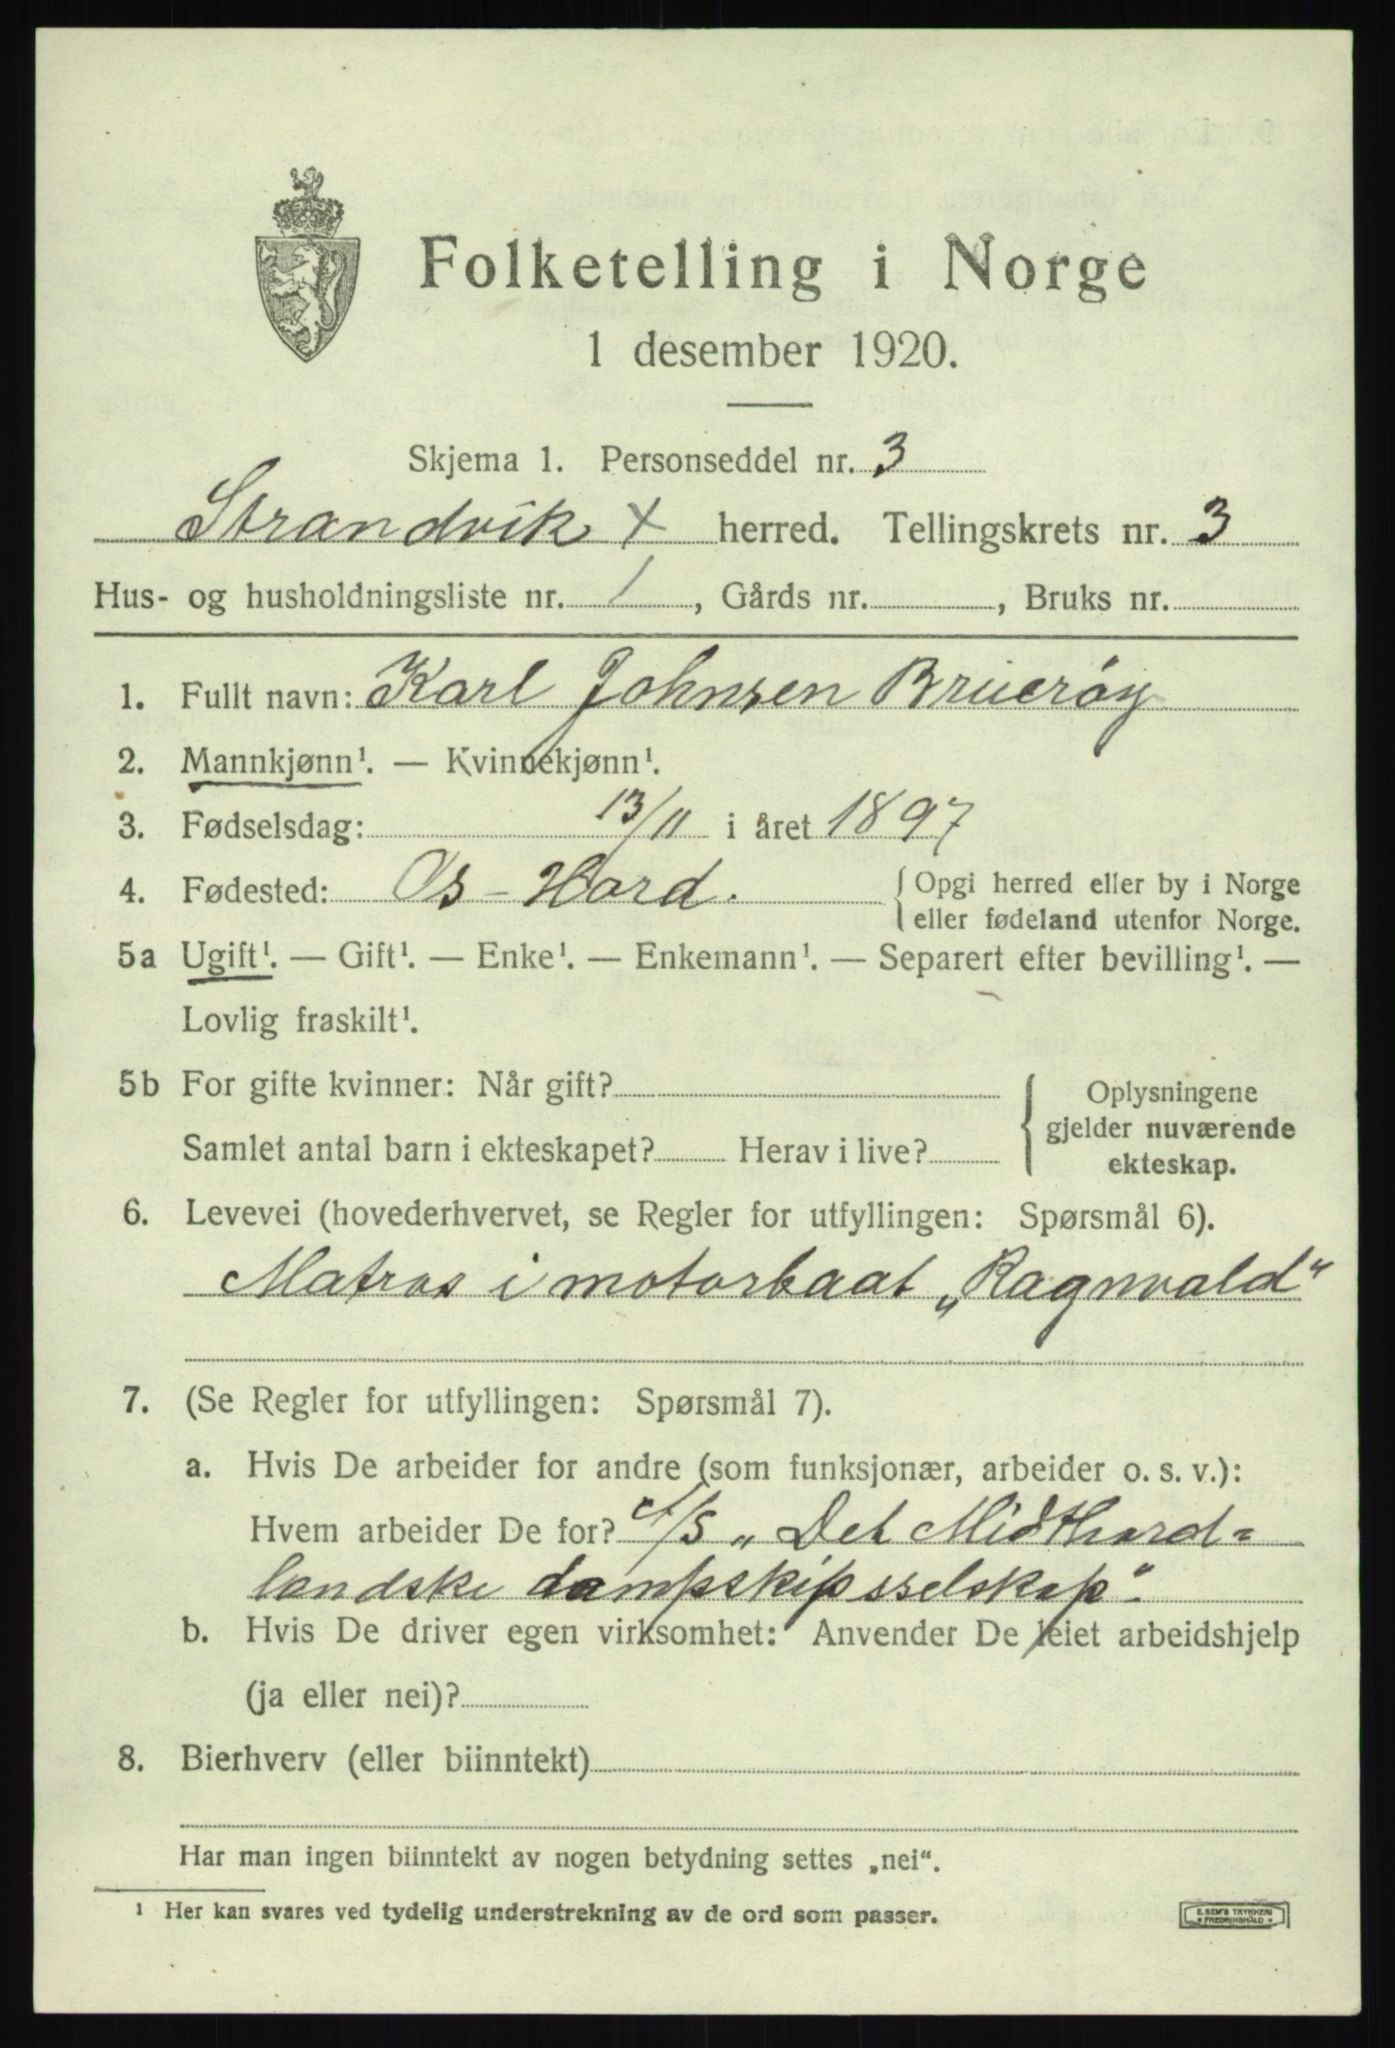 Folketelling i Norge
1 desember 1920.
Skjema 1. Personseddel nr. 3
Strandvik x herred. Tellingskrets nr. 3
Hus- og husholdningsliste nr. 1, Gårds nr. , Bruks nr.
1. Fullt navn: Karl Johnsen Bruerøy
2. Mannkjønn¹. — Kvinnekjønn¹.
3. Fødselsdag: 13/11 i året 1897
4. Fødested: Os - Hord. { Opgi herred eller by i Norge
eller fødeland utenfor Norge.
5a Ugift¹. — Gift¹. — Enke¹. — Enkemann¹. — Separert efter bevilling¹. —
Lovlig fraskilt¹.
5b For gifte kvinner: Når gift? { Oplysningene
gjelder nuværende
Samlet antal barn i ekteskapet? Herav i live?
ekteskap.
6. Levevei (hovederhvervet, se Regler for utfyllingen: Spørsmål 6).
Matros i motorbaat „Ragnvald“
7. (Se Regler for utfyllingen: Spørsmål 7).
a. Hvis De arbeider for andre (som funksjonær, arbeider o. s. v.):
Hvem arbeider De for? A/S „Det Midthord=
landske dampskipsselskap“.
b. Hvis De driver egen virksomhet: Anvender De leiet arbeidshjelp
(ja eller nei)?
8. Bierhverv (eller biinntekt)
Har man ingen biinntekt av nogen betydning settes „nei“.
¹ Her kan svares ved tydelig understrekning av de ord som passer.
E. SEM'S TRYKKERI
FREDRIKSHALD